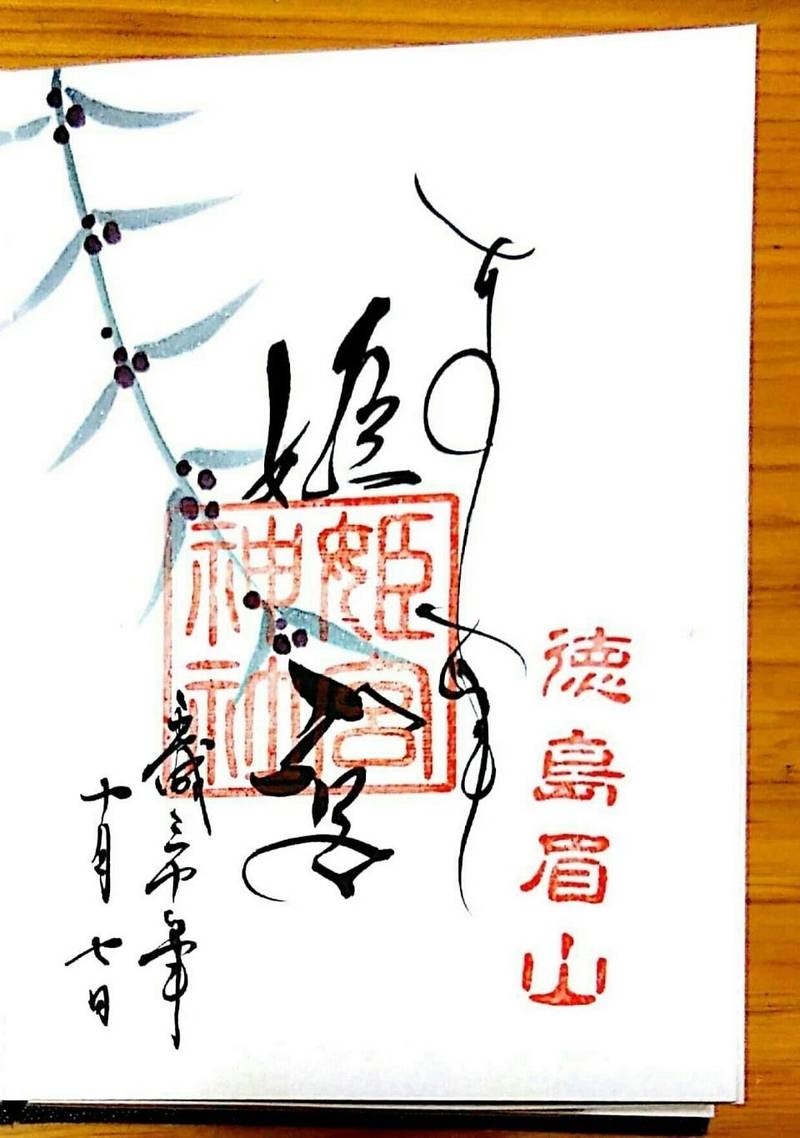 徳島眉山
奉拝
姫宮
姫宮
神社
平成三十年
十月七日